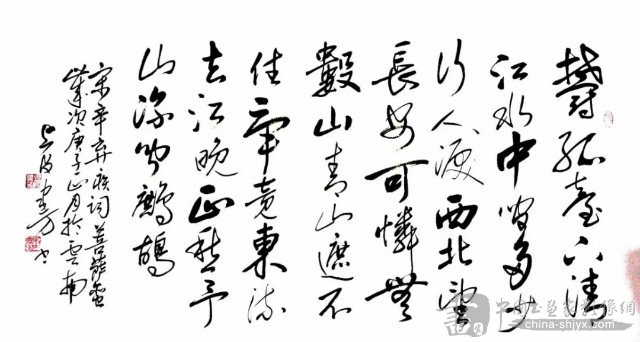 鬱孤臺下清
江水中間多少
行人淚西北望
長安可憐無
數山青山遮不
住畢竟東流
去江晚正愁予
山深聞鷓鴣
宋辛弃疾詞菩薩蛮
歲次庚子正月於雲南
書
中国书画家影像網
china-shjyx.com